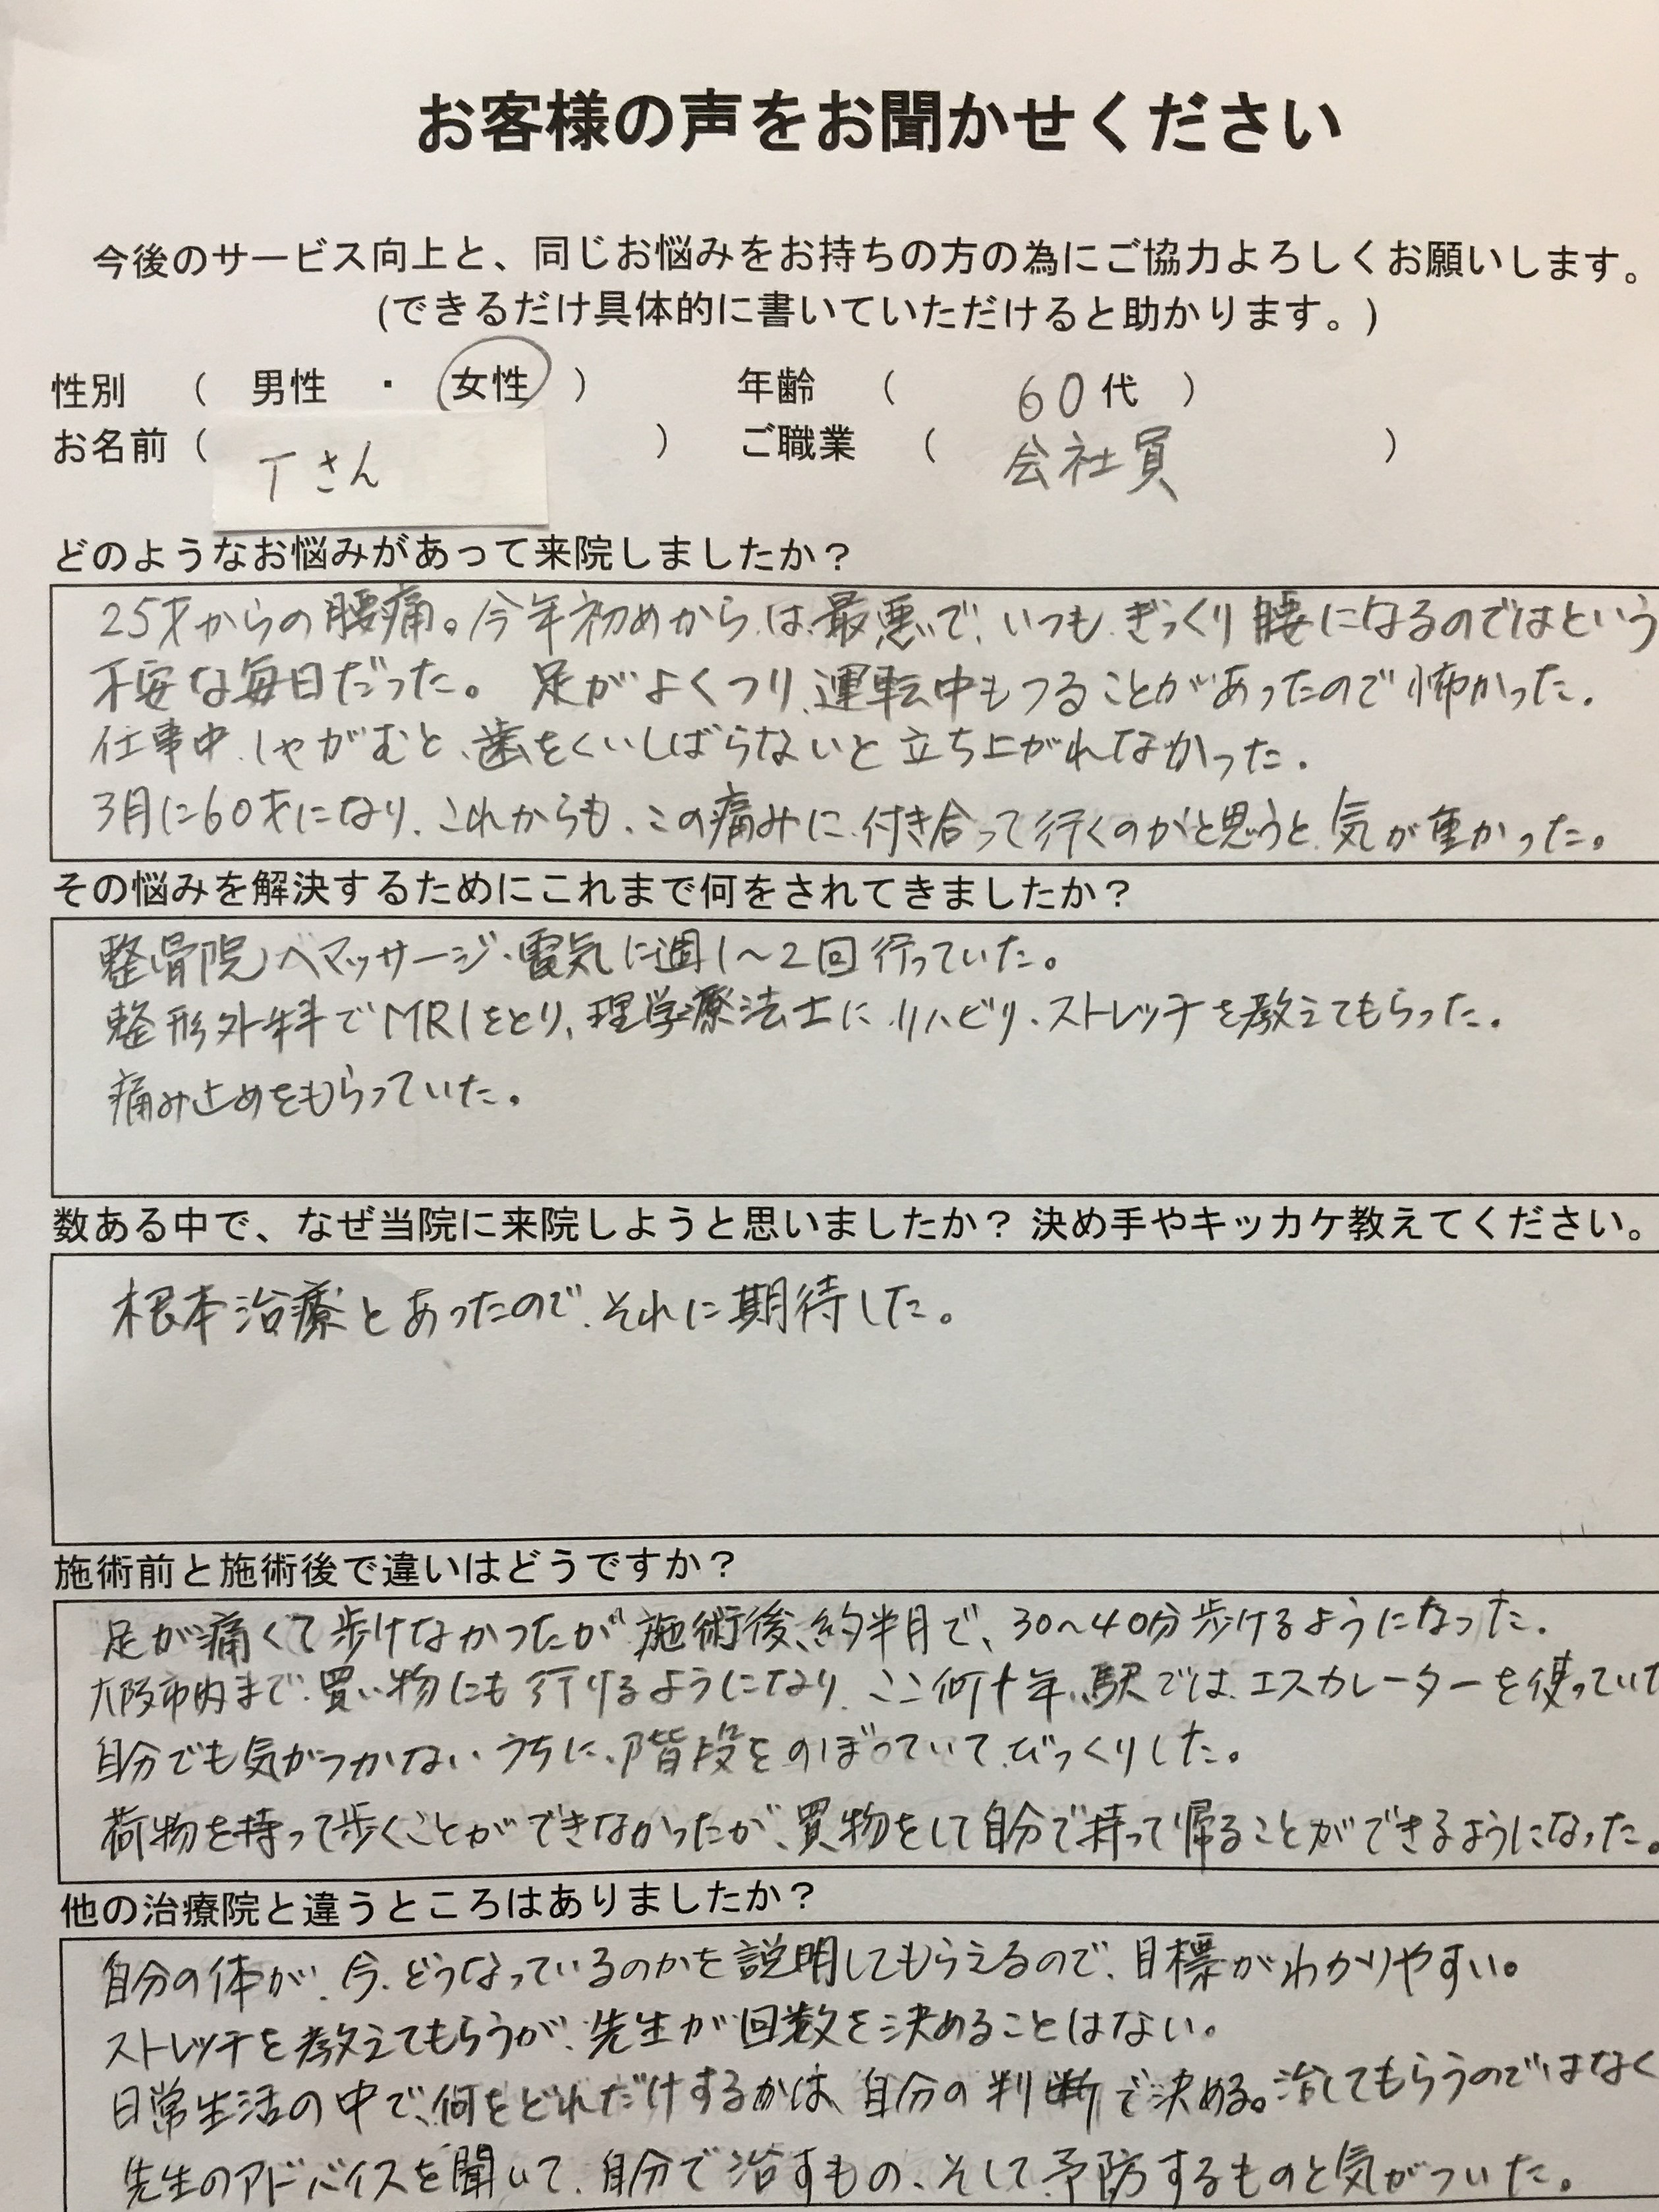 お客様の声をお聞かせください
今後のサービス向上と、同じお悩みをお持ちの方の為にご協力よろしくお願いします。
(できるだけ具体的に書いていただけると助かります。)
性別 ( 男性 ・ 女性 ) 年齢 ( 60代 )
お名前 ( Tさん ) ご職業 ( 会社員 )
どのようなお悩みがあって来院しましたか？
25才からの腰痛。今年初めからは最悪で、いつもぎっくり腰になるのではという
不安な毎日だった。足がよくつり、運転中もつることがあったので怖かった。
仕事中、しゃがむと、歯をくいしばらないと立ち上がれなかった。
3月に60才になり、これからも、この痛みに付き合って行くのかと思うと、気が重かった。
その悩みを解決するためにこれまで何をされてきましたか？
整骨院へマッサージ・電気に週1〜2回行っていた。
整形外科でMRIをとり、理学療法士にリハビリ・ストレッチを教えてもらった。
痛み止めをもらっていた。
数ある中で、なぜ当院に来院しようと思いましたか？ 決め手やキッカケ教えてください。
根本治療とあったので、それに期待した。
施術前と施術後で違いはどうですか？
足が痛くて歩けなかったが施術後、約半月で、30〜40分歩けるようになった。
大阪市内まで、買い物にも行けるようになり、ここ何十年、駅では、エスカレーターを使っていた
自分でも気がつかないうちに、階段をのぼっていて、びっくりした。
荷物を持って歩くことができなかったが、買物をして自分で持って帰ることができるようになった。
他の治療院と違うところはありましたか？
自分の体が、今、どうなっているのかを説明してもらえるので、目標がわかりやすい。
ストレッチを教えてもらうが、先生が回数を決めることはない。
日常生活の中で、何をどれだけするかは、自分の判断で決める。治してもらうのではなく
先生のアドバイスを聞いて、自分で治すもの、そして、予防するものと気がついた。